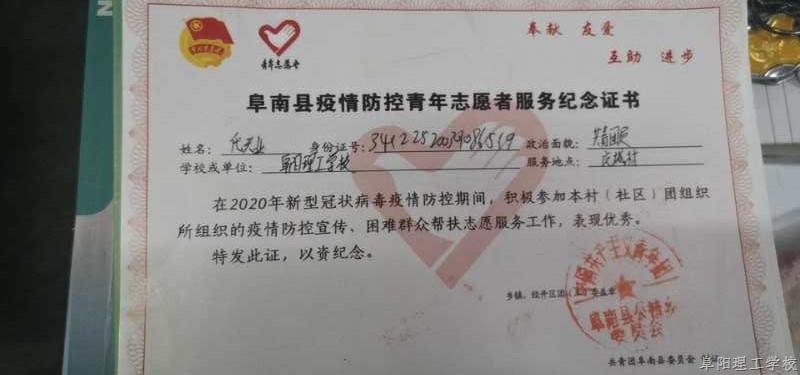 奉献 友爱
互助 进步
青年志愿者
阜南县疫情防控青年志愿者服务纪念证书
姓名: 身份证号: 政治面貌:
学校或单位: 阜阳理工学校 服务地点:
在2020年新型冠状病毒疫情防控期间,积极参加本村(社区)团组织
所组织的疫情防控宣传、困难群众帮扶志愿服务工作,表现优秀。
特发此证,以资纪念。
乡镇、经开区团(工)委盖章
中国共产主义青年团
阜南县公桥乡
委员会
共青团阜南县委员会
阜阳理工学校